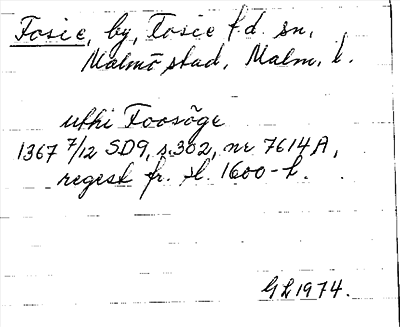 Fosie, by, Fosie f.d. sn,
Malmö stad, Malm. l.
uthi Foosöge
1367 7/12 SD9, s.302, nr 7614A,
regest fr. sl. 1600-t.
GL1974.